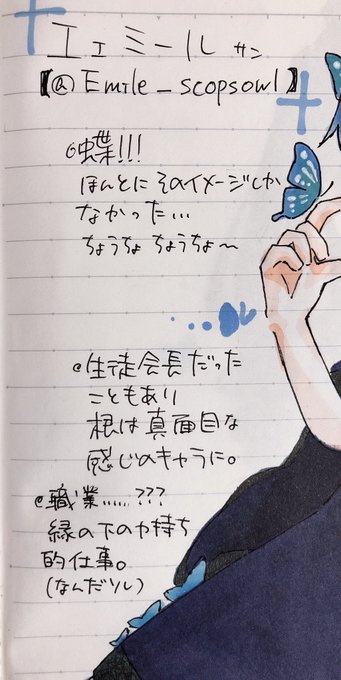 エェミール サン
【@Emile_scopsowl】
◦蝶!!!
ほんとにそのイメージしか
なかった…
ちょうちょ ちょうちょ〜
◦生徒会長だった
こともあり
根は真面目な
感じのキャラに。
◦職業……???
縁の下の力持ち
的仕事。
(なんだソレ)